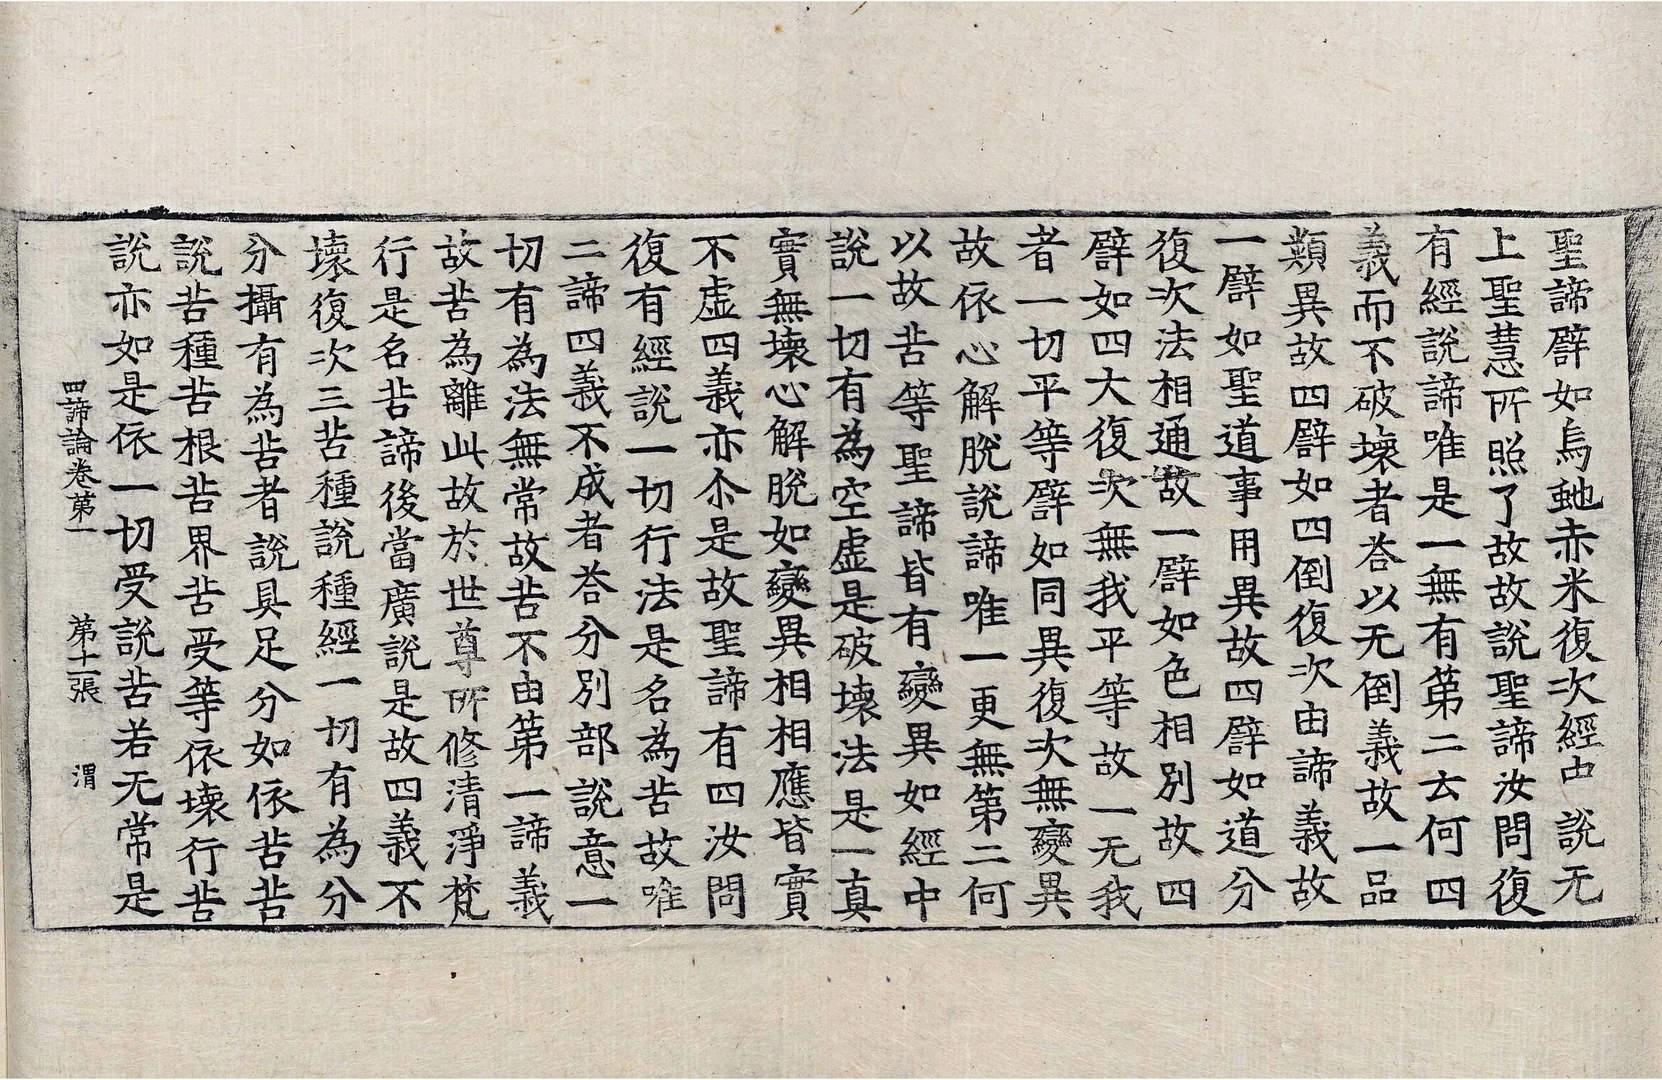 聖諦譬如烏虵赤米復次經中說无
上聖慧所照了故故說聖諦汝問復
有經說諦唯是一無有第二云何四
義而不破壞者荅以无倒義故一品
類異故四譬如四倒復次由諦義故
一譬如聖道事用異故四譬如道分
復次法相通故一譬如色相別故四
譬如四大復次無我平等故一无我
者一切平等譬如同異復次無變異
故依心解脫說諦唯一更無第二何
以故苦等聖諦皆有變異如經中
說一切有為空虛是破壞法是一真
實無壞心解脫如變異相相應皆實
不虛四義亦尒是故聖諦有四汝問
復有經說一切行法是名為苦故唯
二諦四義不成者荅分別部說意一
切有為法無常故苦不由第一諦義
故苦為離此故於世尊所修清淨梵
行是名苦諦後當廣說是故四義不
壞復次三苦種說種經一切有為分
分攝有為苦者說具足分如依苦苦
說苦種苦根苦界苦受等依壞行苦
說亦如是依一切受說苦若无常是
四諦論卷第一 第十二張 渭